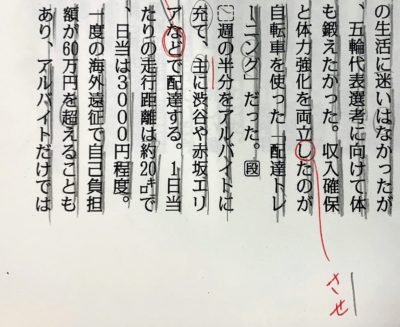 の生活に迷いはなかったが
、五輪代表選考に向けて体
も鍛えたかった。収入確保
と体力強化を両立したのが
自転車を使った「配達トレ
ーニング」だった。段
週の半分をアルバイトに
充て、主に渋谷や赤坂エリ
アなどで配達する。１日当
たりの走行距離は約20㌔で
、日当は３０００円程度。
一度の海外遠征で自己負担
額が60万円を超えることも
あり、アルバイトだけでは
させ